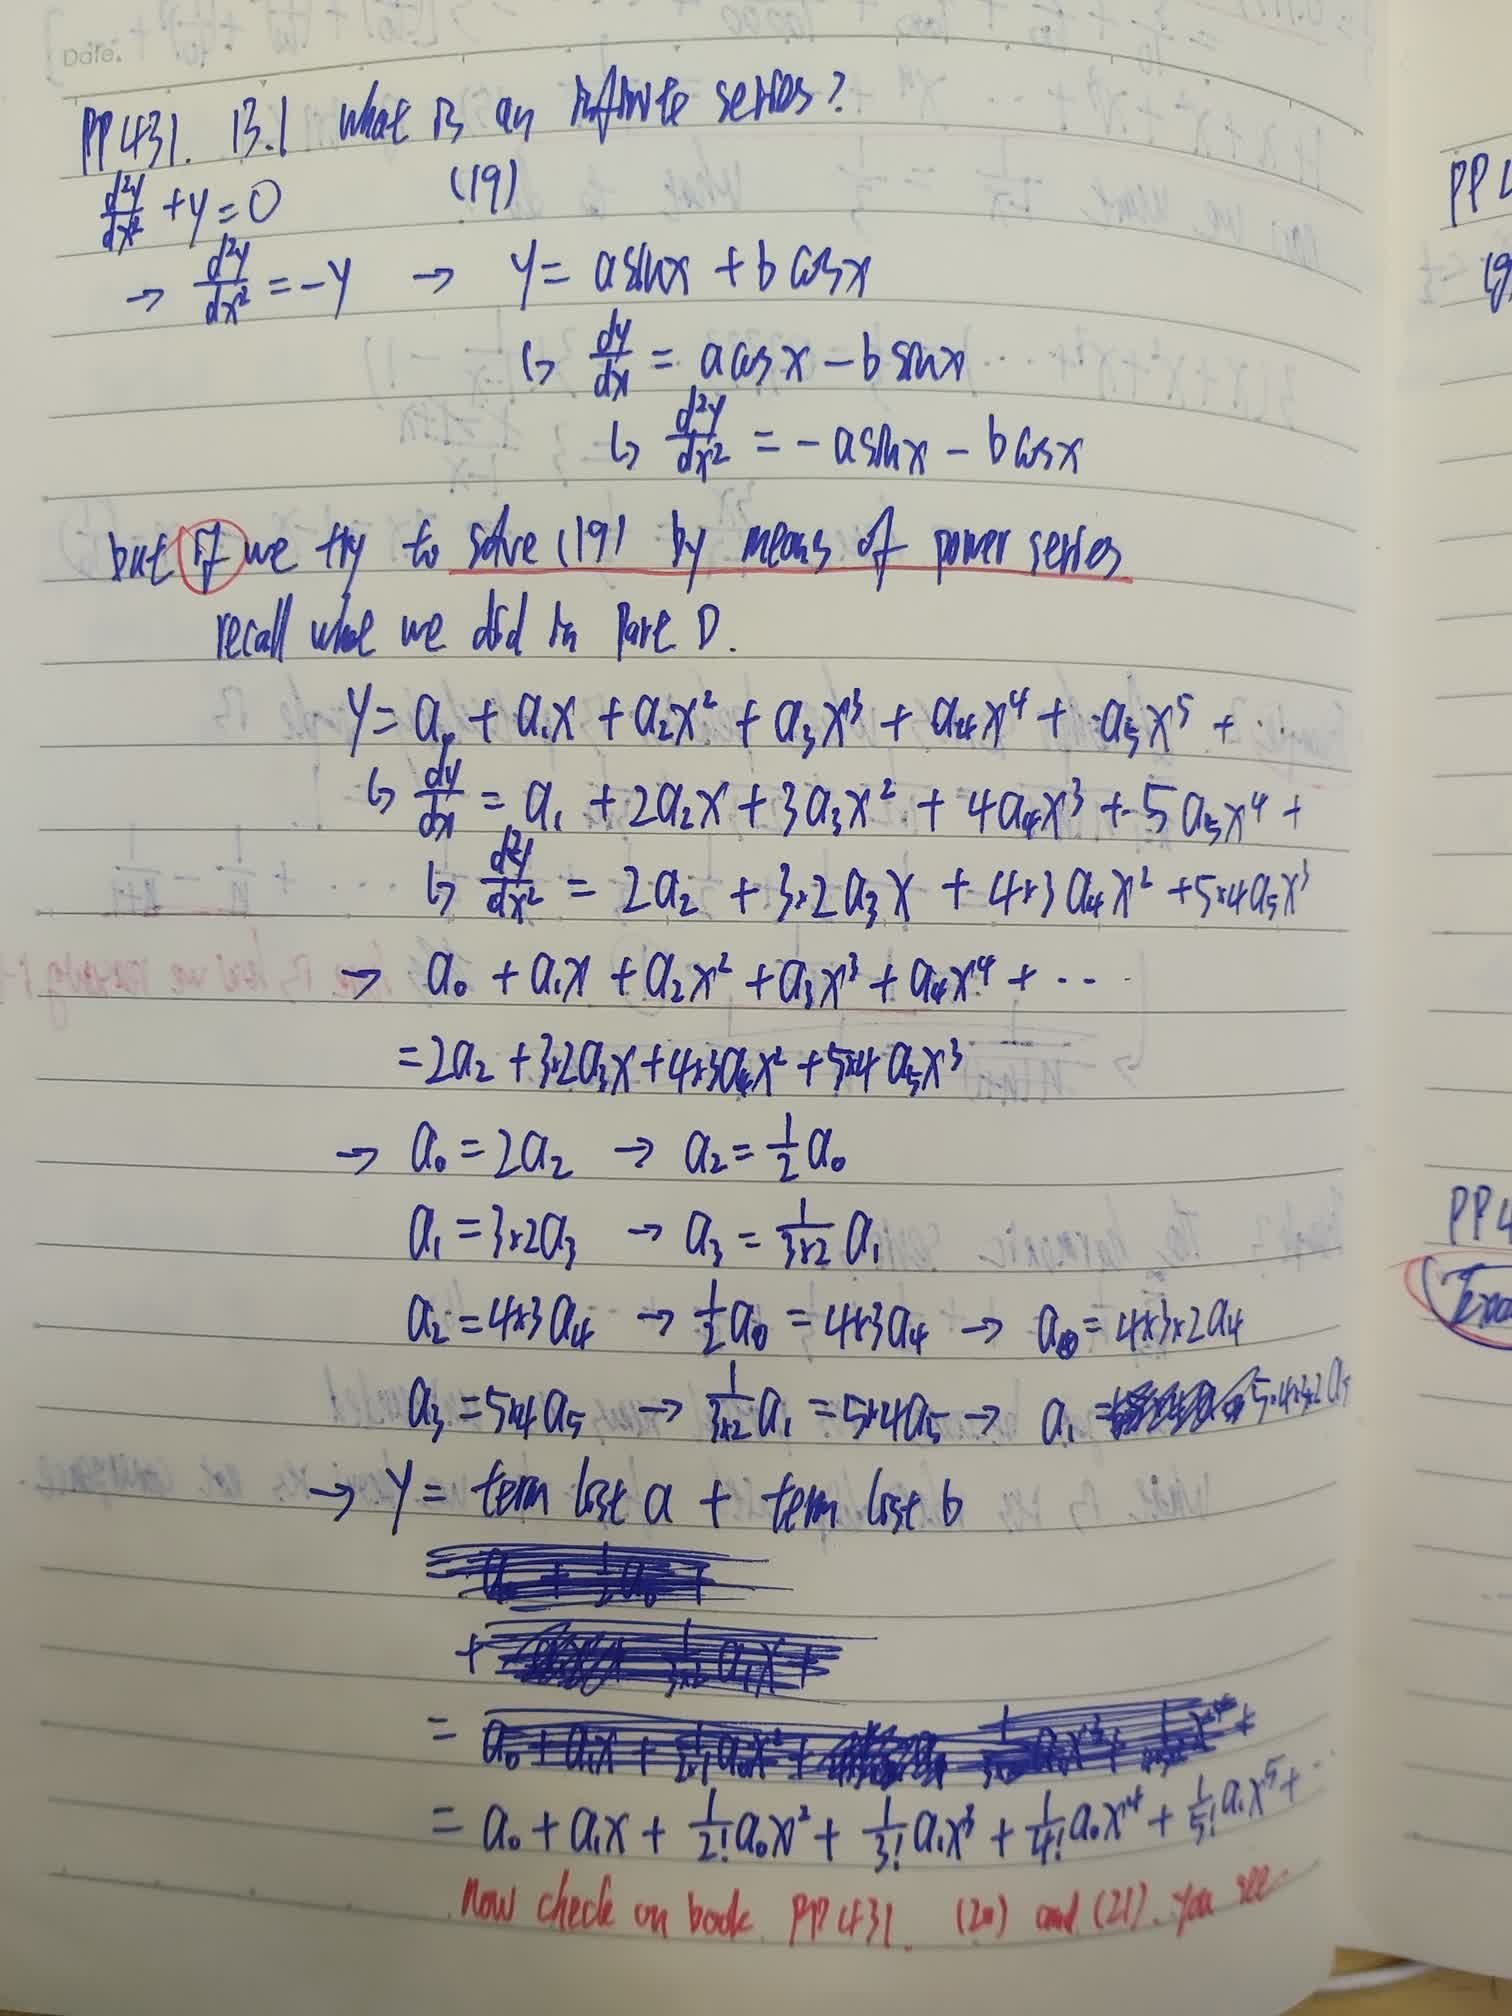 Date.
PP431. 13.1 What is an infinite series?
d²y/dx² + y = 0 (19)
→ d²y/dx² = -y → y = a sin x + b cos x
↳ dy/dx = a cos x - b sin x
↳ d²y/dx² = - a sin x - b cos x
but if we try to solve (19) by means of power series
recall what we did in Part D.
y = a₀ + a₁x + a₂x² + a₃x³ + a₄x⁴ + a₅x⁵ + ·
↳ dy/dx = a₁ + 2a₂x + 3a₃x² + 4a₄x³ + 5a₅x⁴ +
↳ d²y/dx² = 2a₂ + 3×2a₃x + 4×3a₄x² + 5×4a₅x³
→ a₀ + a₁x + a₂x² + a₃x³ + a₄x⁴ + ···
= 2a₂ + 3×2a₃x + 4×3a₄x² + 5×4a₅x³
→ a₀ = 2a₂ → a₂ = 1/2 a₀
a₁ = 3×2a₃ → a₃ = 1/3×2 a₁
a₂ = 4×3a₄ → 1/2 a₀ = 4×3a₄ → a₀ = 4×3×2a₄
a₃ = 5×4a₅ → 1/3×2 a₁ = 5×4a₅ → a₁ = 5×4×3×2a₅
→ y = term list a + term list b
+
=
= a₀ + a₁x + 1/2! a₀x² + 1/3! a₁x³ + 1/4! a₀x⁴ + 1/5! a₁x⁵ + ··
Now check on book PP431. (20) and (21). you see
PP4
PP4